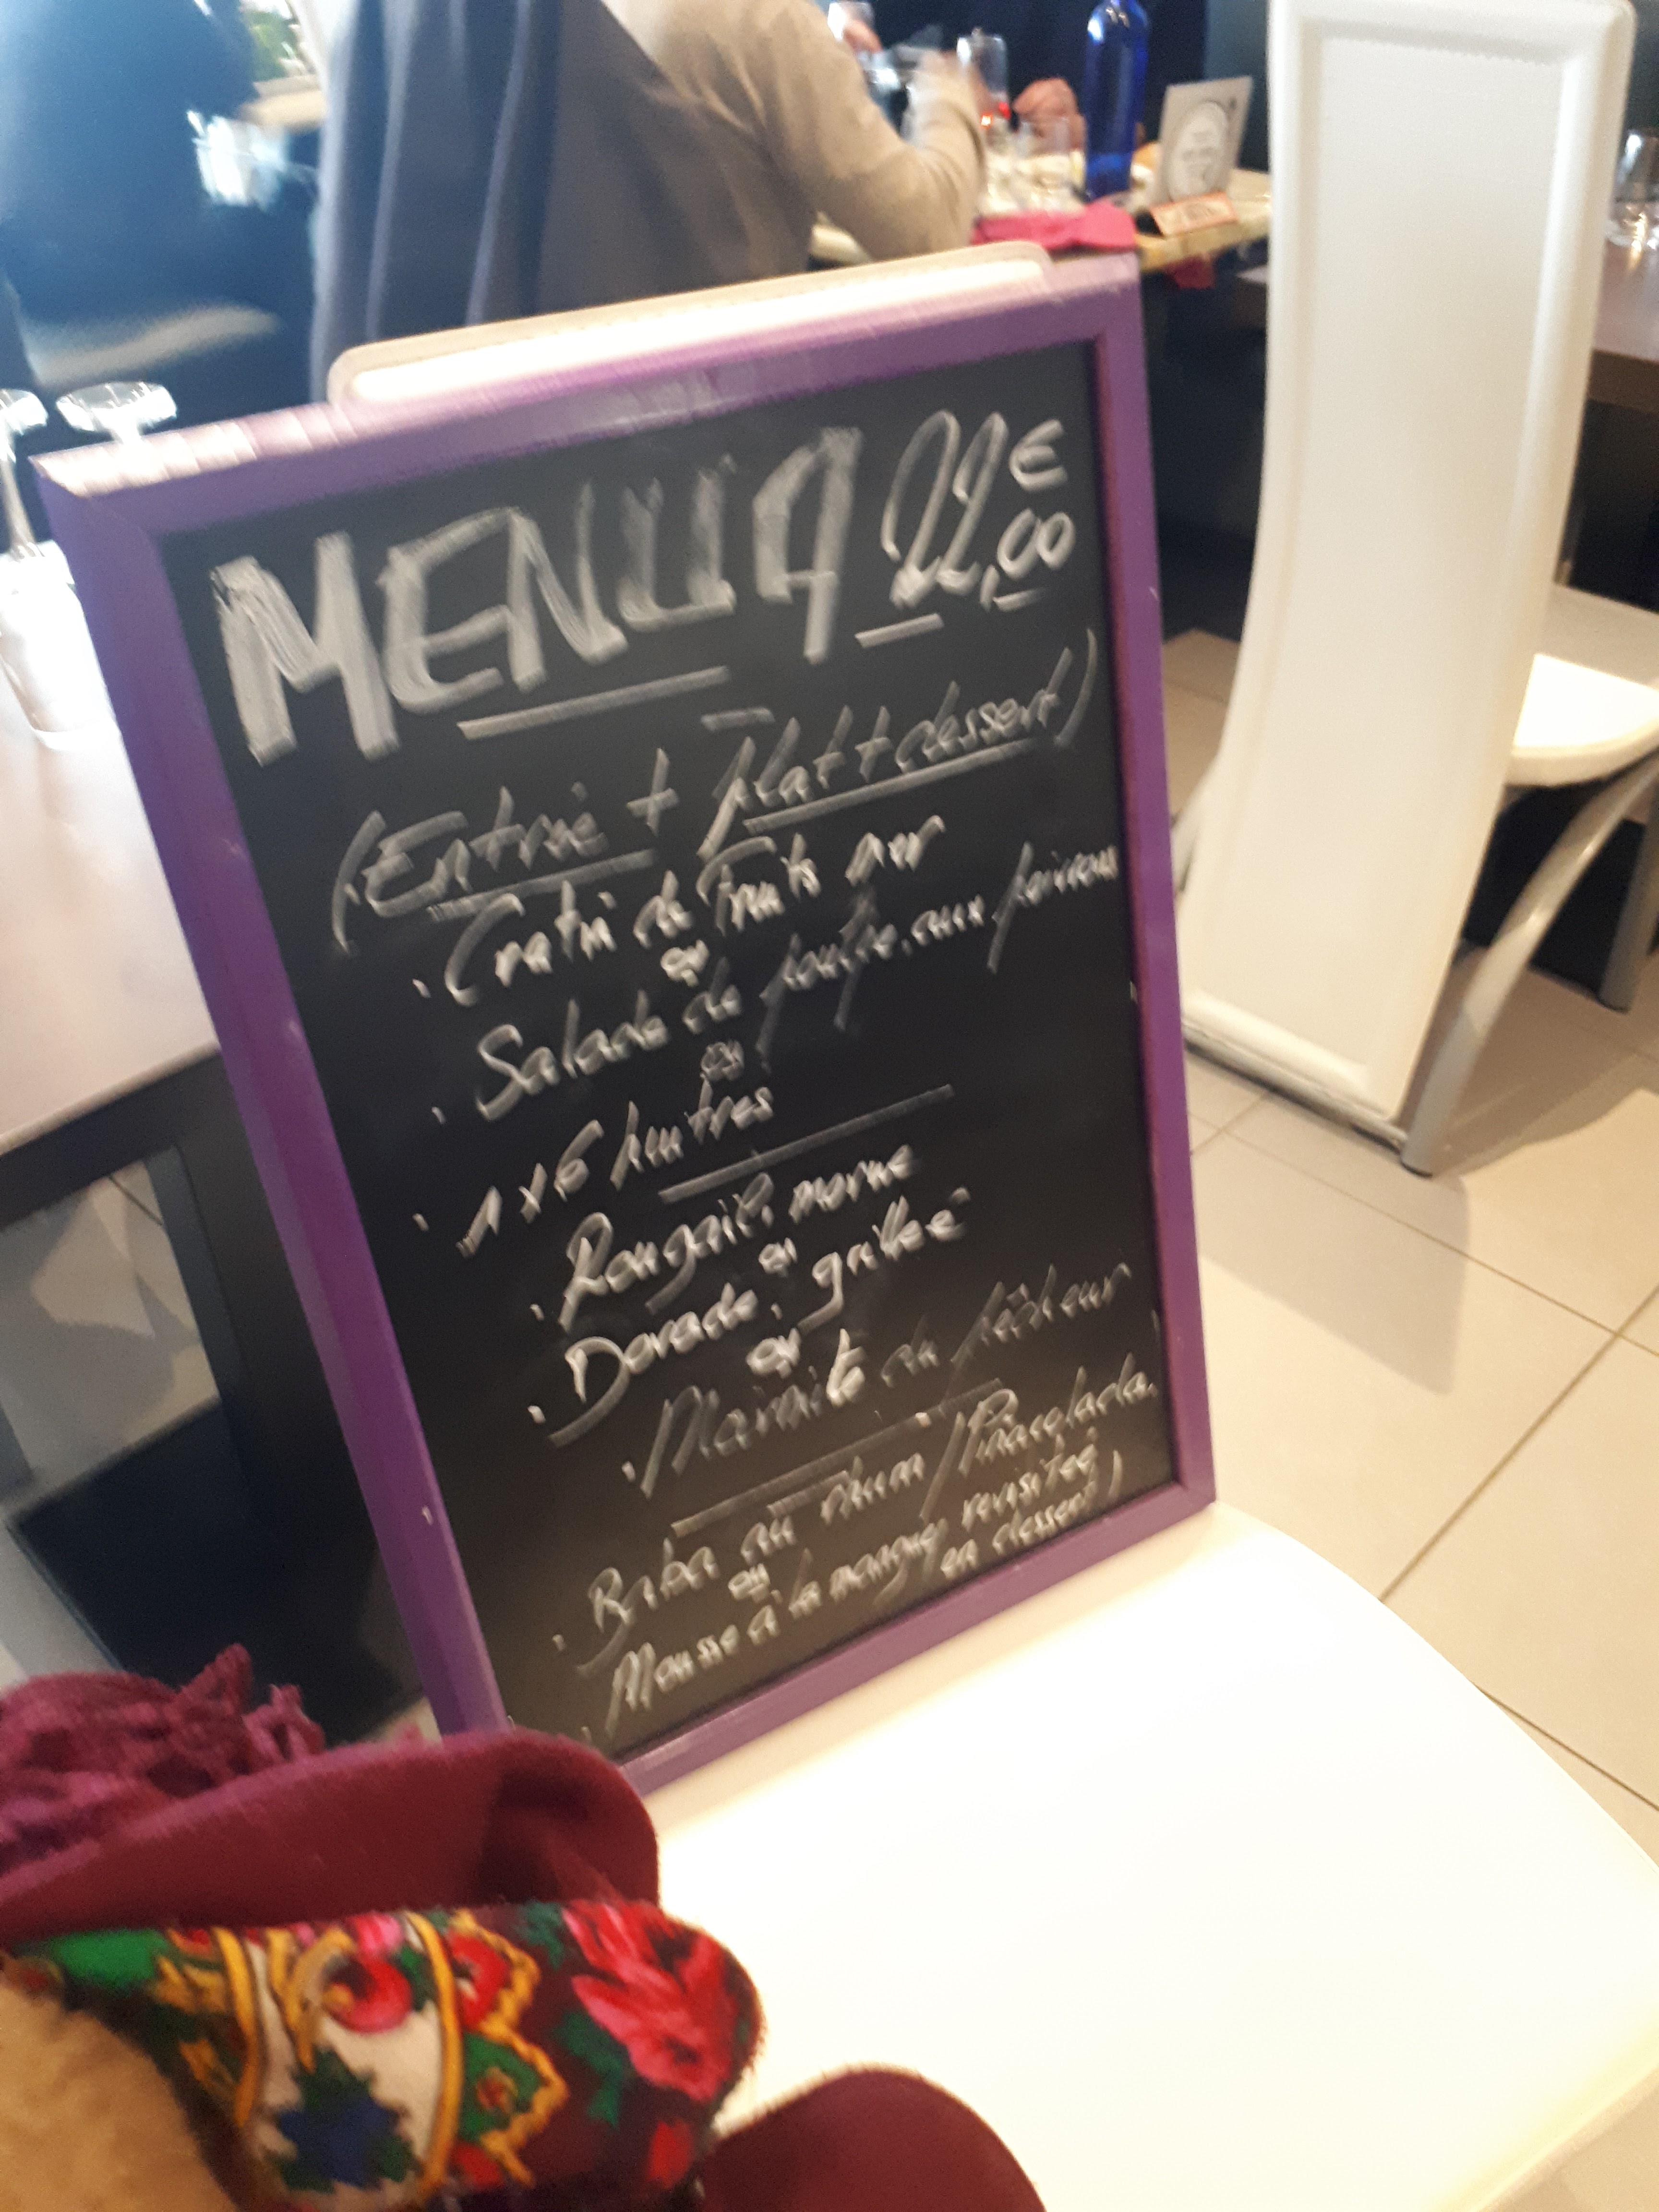 MENU A 22,00 €
(Entrée + plat + dessert)
. Gratin de Fruits mer
ou
. Salade de poulpe aux poivrons
ou
. 1 x 6 huitres
. Rougail, morue
ou
. Dorade, grillée
ou
. Marmite du pêcheur
. Baba au rhum / Pinacolada
ou revisitée
Mousse à la mangue en dessert)